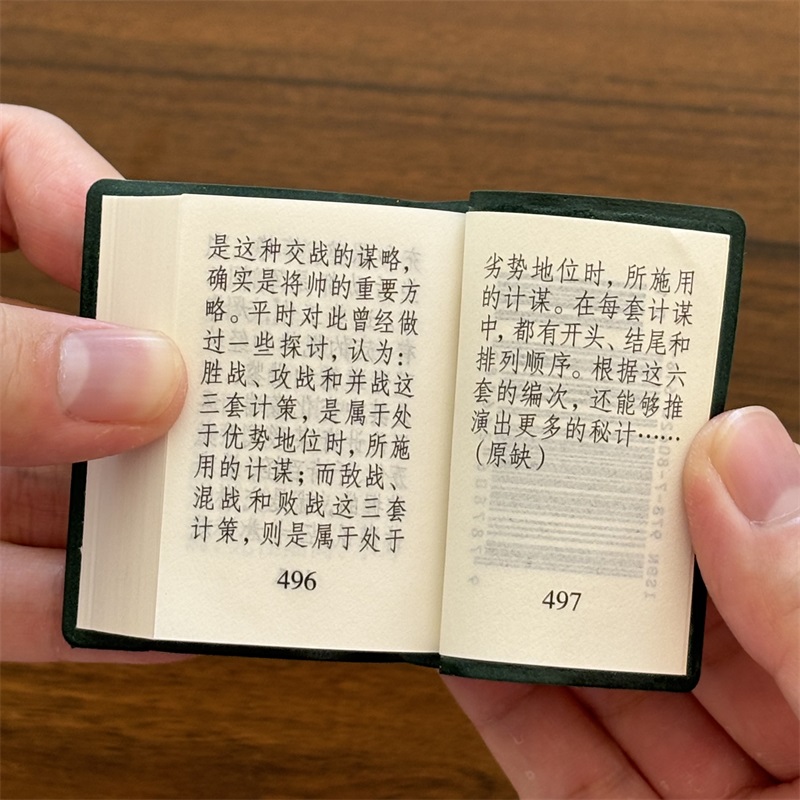 是这种交战的谋略，
确实是将帅的重要方
略。平时对此曾经做
过一些探讨，认为：
胜战、攻战和并战这
三套计策，是属于处
于优势地位时，所施
用的计谋；而敌战、
混战和败战这三套
计策，则是属于处于
496
劣势地位时，所施用
的计谋。在每套计谋
中，都有开头、结尾和
排列顺序。根据这六
套的编次，还能够推
演出更多的秘计……
（原缺）
497